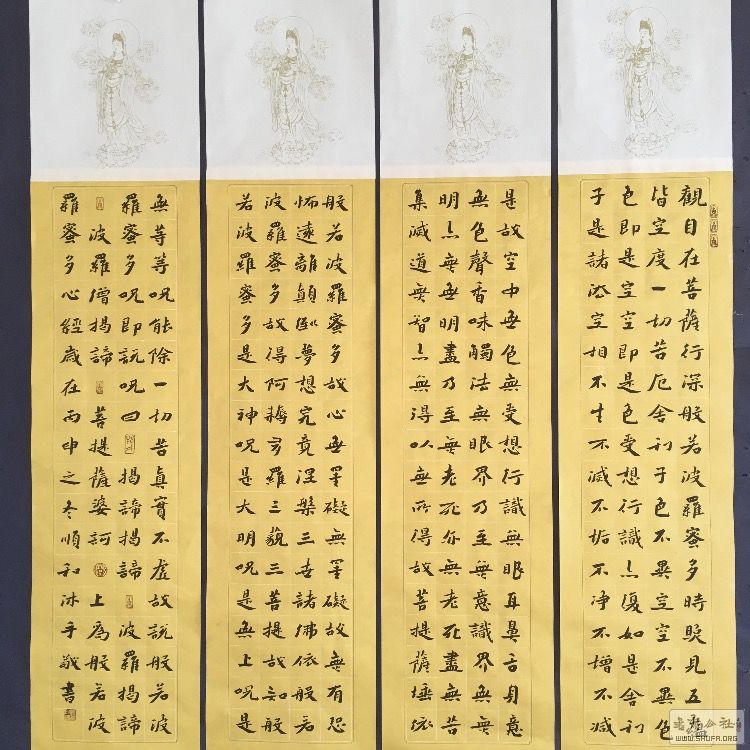 觀自在菩薩行深般若波羅蜜多時照見五蘊
皆空度一切苦厄舍利子色不異空空不異色
色即是空空即是色受想行識亦復如是舍利
子是諸法空相不生不滅不垢不淨不增不減
是故空中無色無受想行識無眼耳鼻舌身意
無色聲香味觸法無眼界乃至無意識界無無
明亦無無明盡乃至無老死亦無老死盡無苦
集滅道無智亦無得以無所得故菩提薩埵依
般若波羅蜜多故心無罣礙無罣礙故無有恐
怖遠離顛倒夢想究竟涅槃三世諸佛依般若
波羅蜜多故得阿耨多羅三藐三菩提故知般
若波羅蜜多是大神呪是大明呪是無上呪是
無等等呪能除一切苦真實不虛故說般若波
羅蜜多呪即說呪曰 揭諦揭諦 波羅揭諦
波羅僧揭諦 菩提薩婆訶 上為般若波
羅蜜多心經歲在丙申之冬順和沐手敬書
书法公社
WWW.SHUFA.ORG